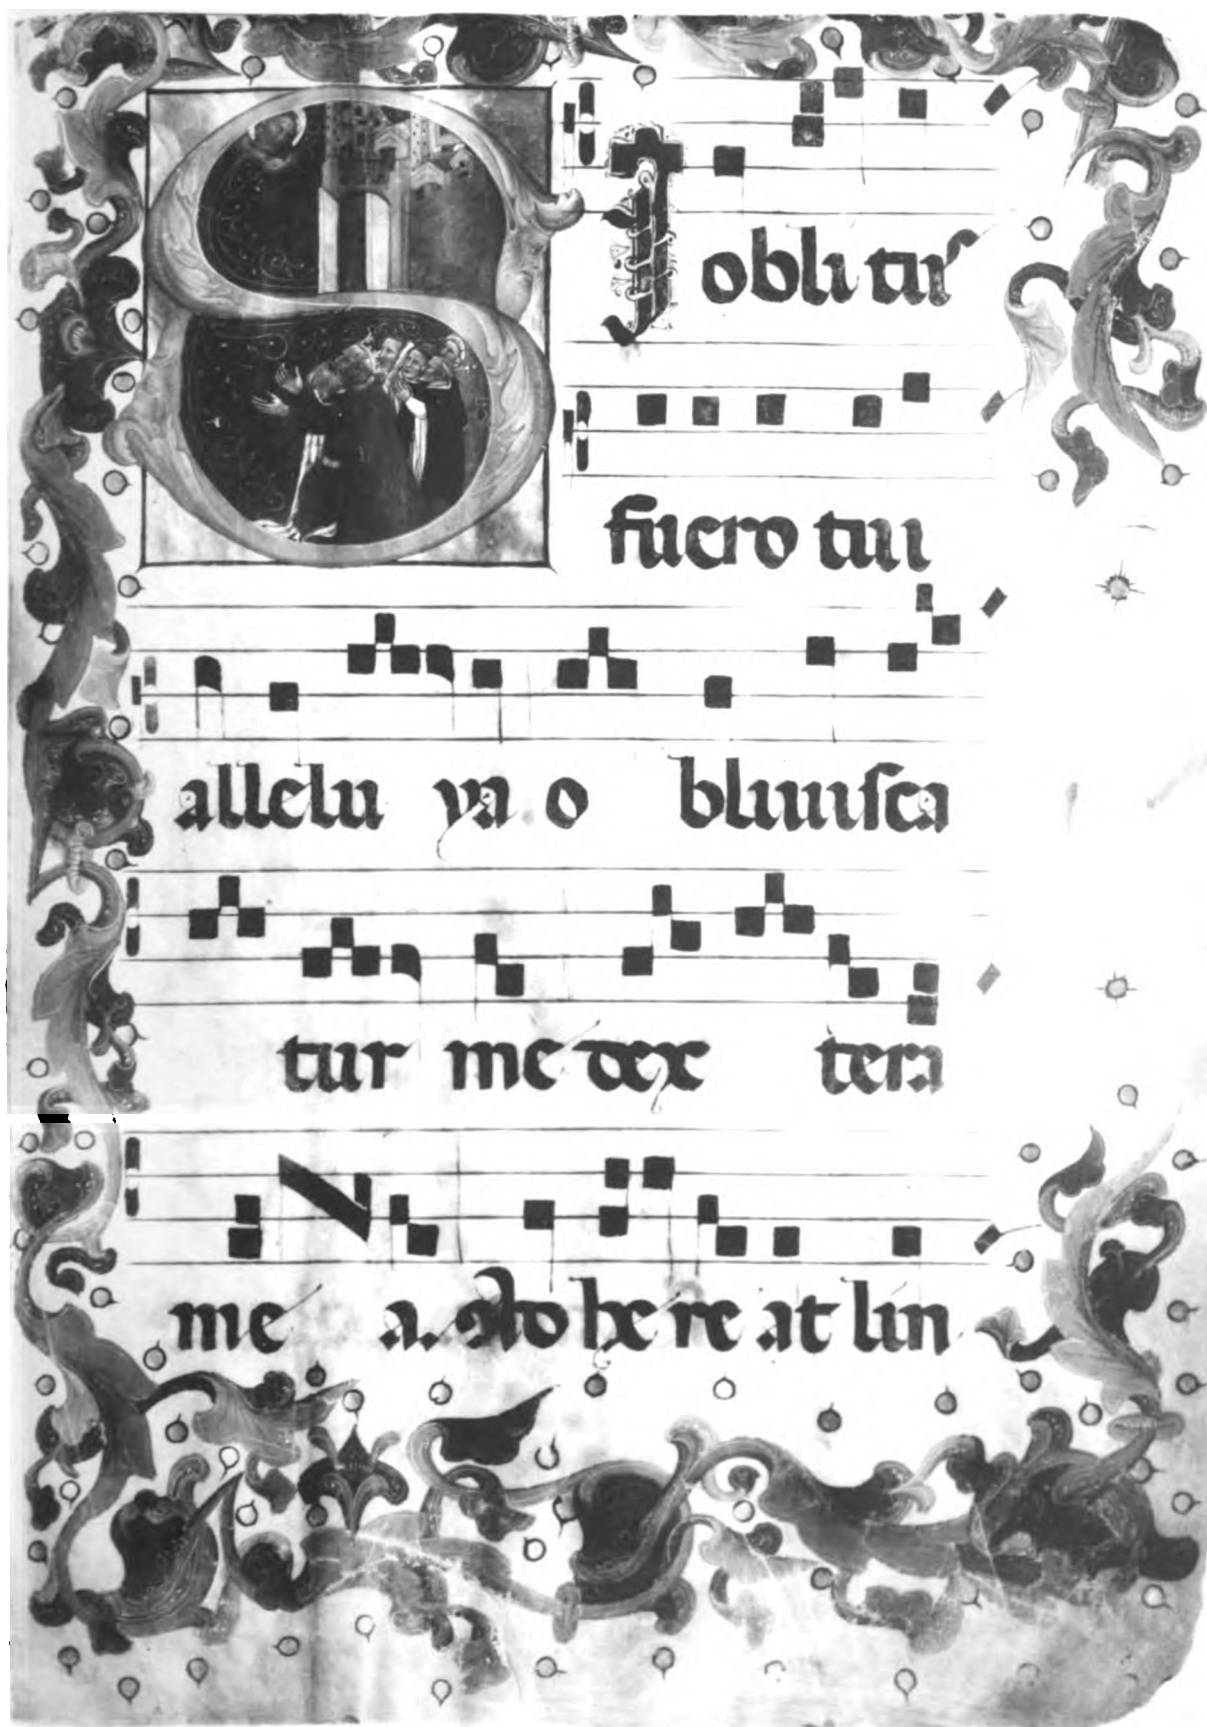 SI oblitus
fuero tui
alleluya obliuisca
tur me dextera
mea. Adhereat lin